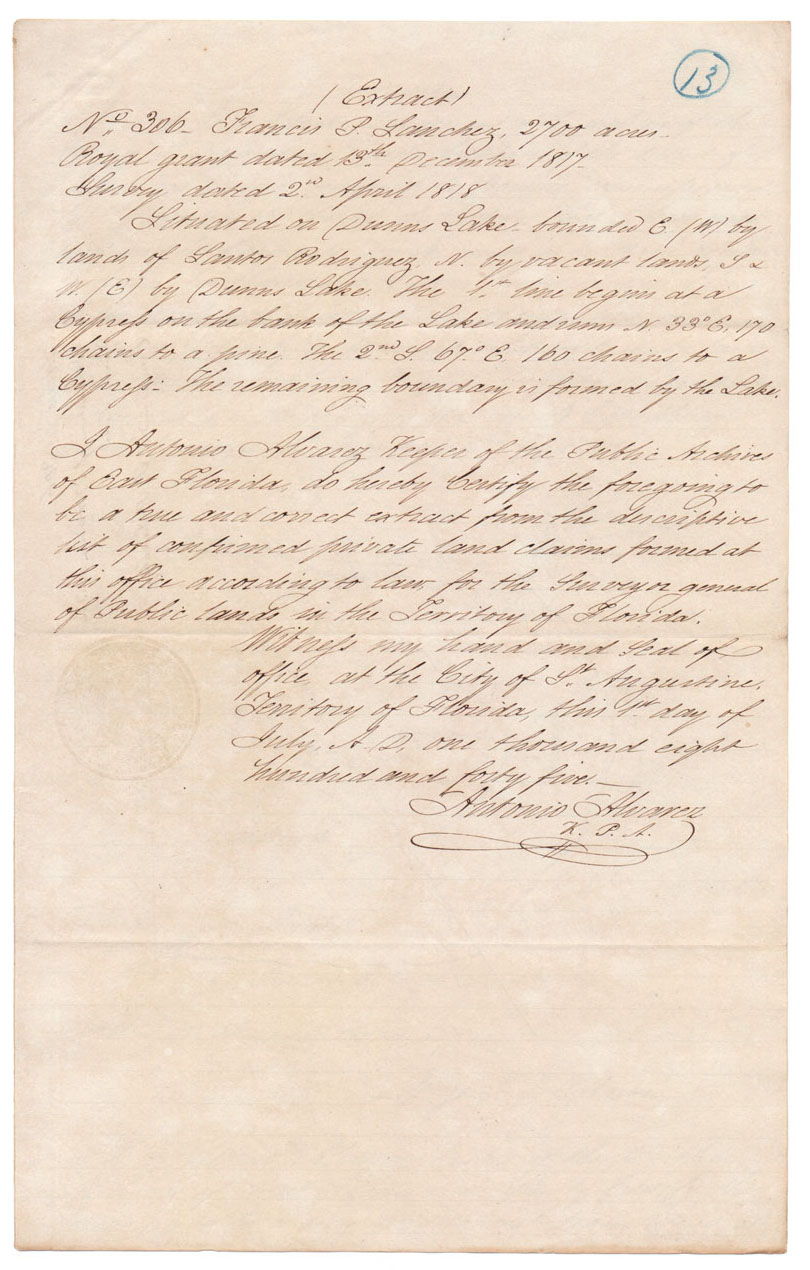 13
(Extract)
No. 306 - Francis P. Sanchez, 2700 acres -
Royal grant dated 13th December 1817 -
Survey dated 2nd April 1818
Situated on Dunns Lake - bounded E. (W) by
lands of Santos Rodriguez, N. by vacant lands, S &
W (E) by Dunns Lake. The 1st line begins at a
Cypress on the bank of the Lake and runs N. 33° E. 170
chains to a pine. The 2nd S. 67° E. 160 chains to a
Cypress: The remaining boundary is formed by the Lake.
I Antonio Alvarez Keeper of the Public Archives
of East Florida, do hereby Certify the foregoing to
be a true and correct extract from the descriptive
list of confirmed private land claims formed at
this office according to law, for the Surveyor general
of Public lands, in the Territory of Florida.
Witness my hand and seal of
office, at the City of St. Augustine,
Territory of Florida, this 1st day of
July, A. D. one thousand eight
hundred and forty five. -
Antonio Alvarez
K. P. A.